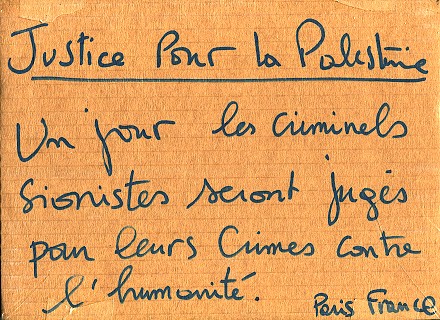 Justice Pour la Palestine
Un jour les criminels
sionistes seront jugés
pour leurs Crimes contre
l'humanité.
Paris France